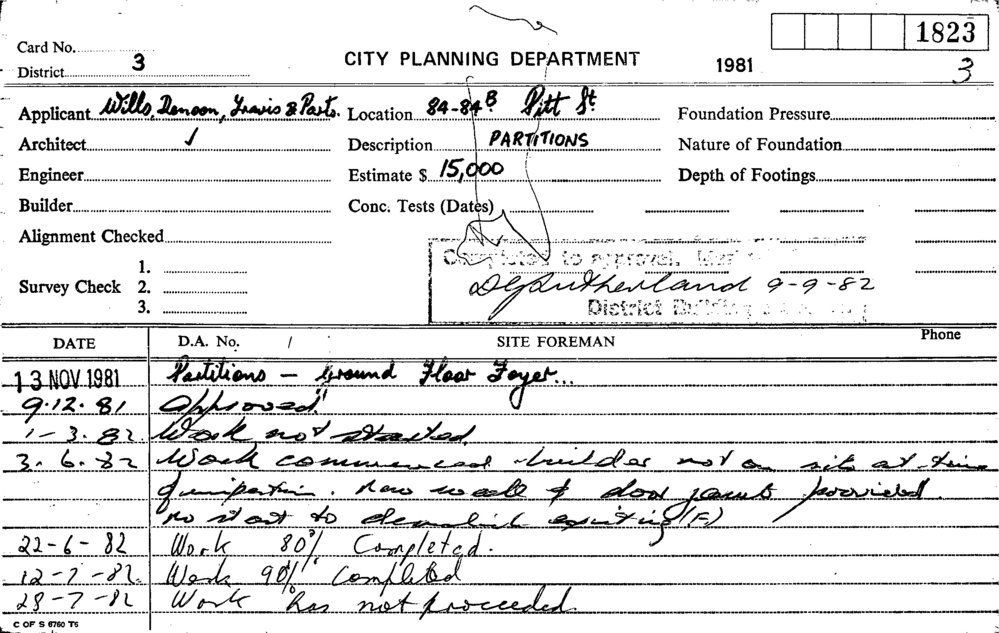 1823
Card No.
CITY PLANNING DEPARTMENT
1981
3
District 3
Applicant Wills, Denoon, Travis & Parts. Location 84-84B Pitt St. Foundation Pressure
Architect ✓ Description PARTITIONS Nature of Foundation
Engineer Estimate $ 15,000 Depth of Footings
Builder Conc. Tests (Dates)
Alignment Checked
Completed to approval.
1.
Survey Check 2. DGSutherland 9-9-82
3. District Building
DATE D.A. No. / SITE FOREMAN Phone
13 NOV 1981 Partitions - Ground Floor Foyer...
9.12.81 Approved"
1-3.82 Work not started.
3.6.82 Work commenced - builder not on site at time
of inspection. New wall & door jamb provided.
no start to demolish existing (F)
22-6-82 Work 80% Completed.
12-7-82. Work 90% Completed
28-7-82 Work has not proceeded.
C OF S 6760 T6